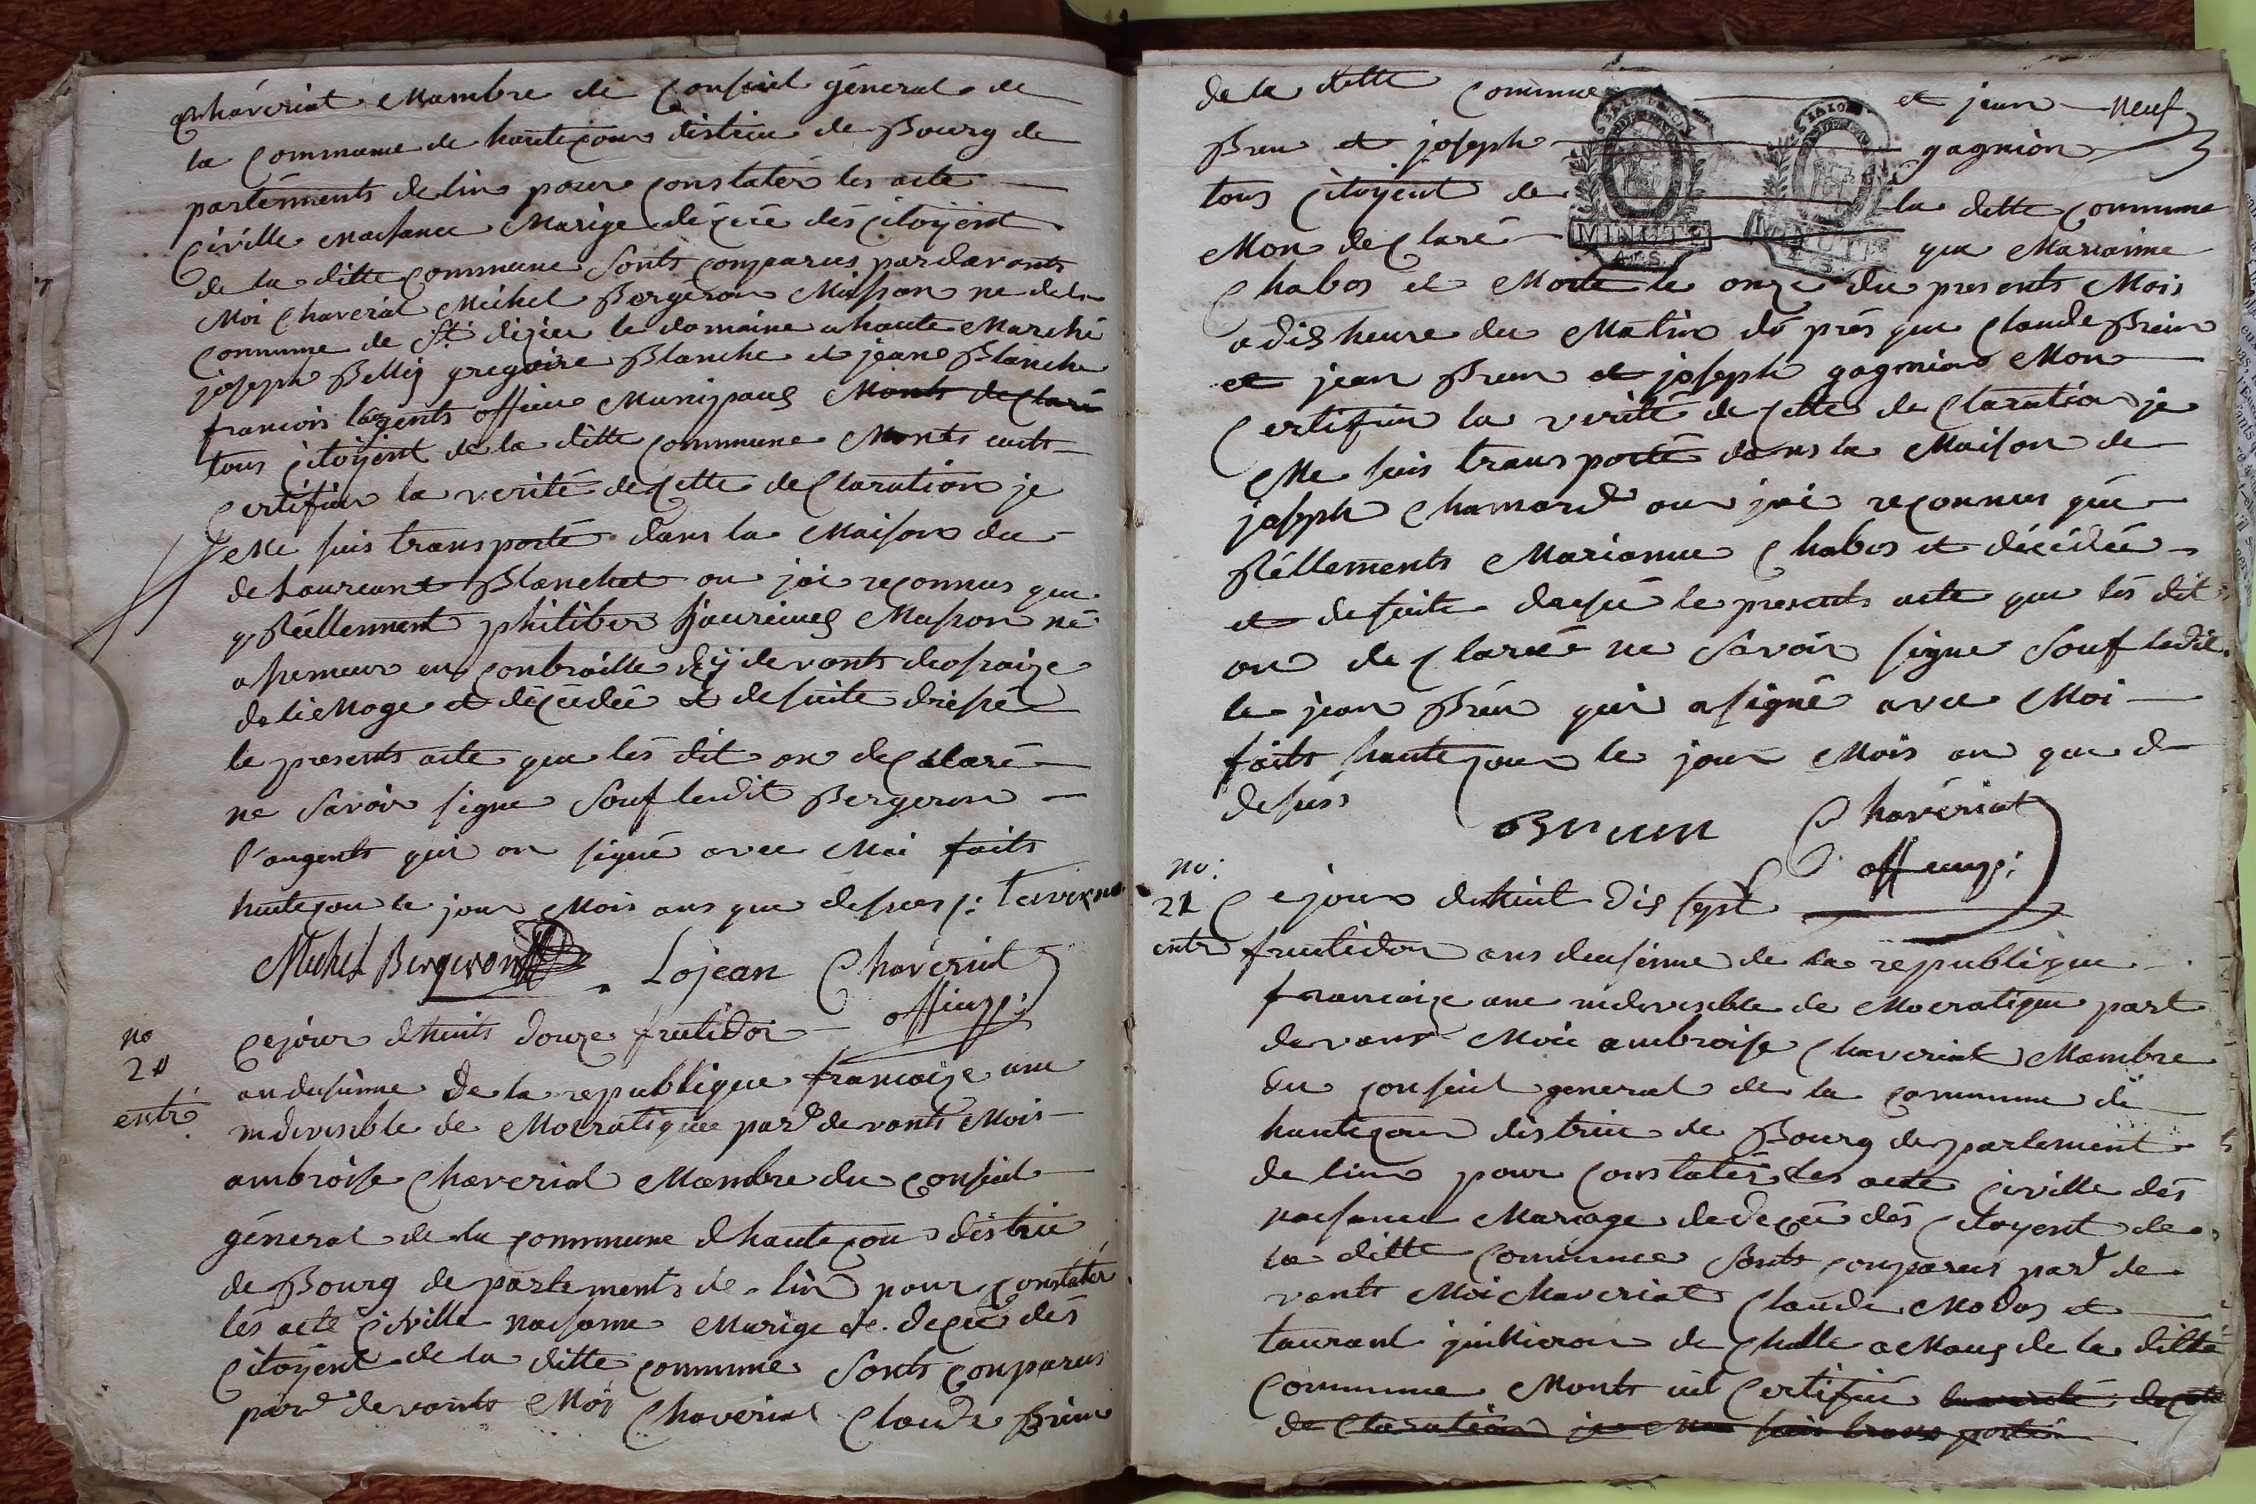 chaveriat Mambre de Conseiel géneral de
la Commune de hautecour distric de Bourg de
partéments delin pour Constatér les acte
Civille naisance Marige déçcé dés Citoyent
de la ditte commune Sonts comparus pardavants
Moi Chaveriat Michel Bergeron Masson ne dela
Commune de St dizier le domaine a haute Marche
joseph Bellig gregoire Blanche et jeane Blanche
francois lagents officie Municipaus Monts declaré
tous Citoyent de la ditte Commune Monts cuits
Certifier la verité de Cette de Claration je
Me suis transporté dans la Maison du
de Laureant Blanchet ou jai reconnus que
q Réellement philiber Maison né
a en Conbraille devants deosraize
de lie Mage et décédeé et desuite drésée
le presents acte que lés dit on deClaré
ne Savoir signe Souf ledit Bergeron
l'angents qui on signé avec Moi faits
hautecou le jour Mois ans que desues
Michel Bergeron Lojean Chaveriat
officiep:
no Cejour dhuits douze frutidor
2
entr. an dusiême de la republique francaize une
indivisible de Mocratique par devants Mois
ambroise Chaveriat Mambre du Conseiel
géneral de la Commune dhautecour distric
de Bourg de partements de lin pour Constatér
lés acte Civille naisanse Marige de deçcé dés
Citoyent de la ditte commune Sonts Comparus
par devants Moi Chaveriat Claude Breuu
de la ditte Commune et jean Neuf
Breu et joseph gagnion
tous Citoyent de la ditte Commune
MINUTE
MINUTE
Mon deClaré que Marianne
Chabos et Morte le onze du presents Mois
a dis heure du Matin dé prés que Claude Breu
et jean Breu et joseph gagnion Mon
Certifier la verité de Cette de Claration je
Me suis transporté dans la Maison de
joseph Chamard ou jai reconnus que
Réellements Marianne Chabos et décédée
et desuite dresée le presents acte que lés dit
on de Clareé ne Savoir signe Souf ledit
le jean Breu qui a signé avec Moi
faits hautecour le jour Mois an que d
desuss
Breun Chavériat
officiep:
no:
21 Cejour dhuit dis sept
entr frutidor ans deusieme de la republique
francaize une indivisible de Mocratique part
devant Moi ambroise Chaveriat Mambre
du Conseiel general de la Commune de
hautecour distric de Bourg departement
de lin pour Constatér les acte Civille dés
naisance Mariage dedeçcé dés Citoyent de
la ditte Commune Sonts Comparus par de
vants Moi Chaveriat Claude Modas et
Laurant juilleron de Challe a Maus de la ditte
Commune Monts cuit Certifié la verité de Cette
de Claration je me suis transporté